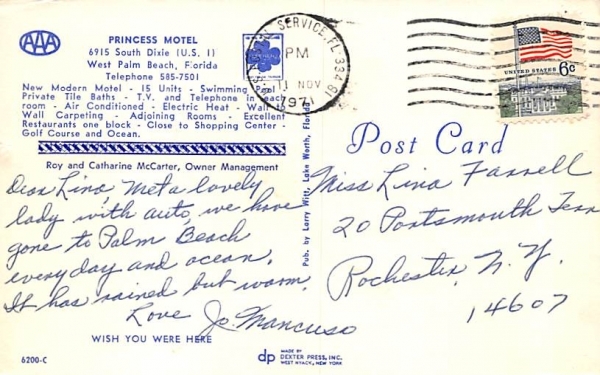 AAA
PRINCESS MOTEL
6915 South Dixie (U.S. 1)
West Palm Beach, Florida
Telephone 585-7501
New Modern Motel - 15 Units - Swimming Pool
Private Tile Baths - T.V. and Telephone in each
room - Air Conditioned - Electric Heat - Wall to
Wall Carpeting - Adjoining Rooms - Excellent
Restaurants one block - Close to Shopping Center -
Golf Course and Ocean.
Roy and Catharine McCarter, Owner Management
Dear Lina, Met a lovely
lady with auto, we have
gone to Palm Beach
everyday and ocean.
It has rained but warm.
Love Jo Mancuso
WISH YOU WERE HERE
6200-C
Pub. by Larry Witt, Lake Worth, Florida
dp
MADE BY
DEXTER PRESS, INC.
WEST NYACK, NEW YORK
SERVICE, FL 334
PM
11 NOV
1971
UNITED STATES 6c
Post Card
Miss Lina Farrell
20 Portsmouth Terr
Rochester, N.Y.
14607